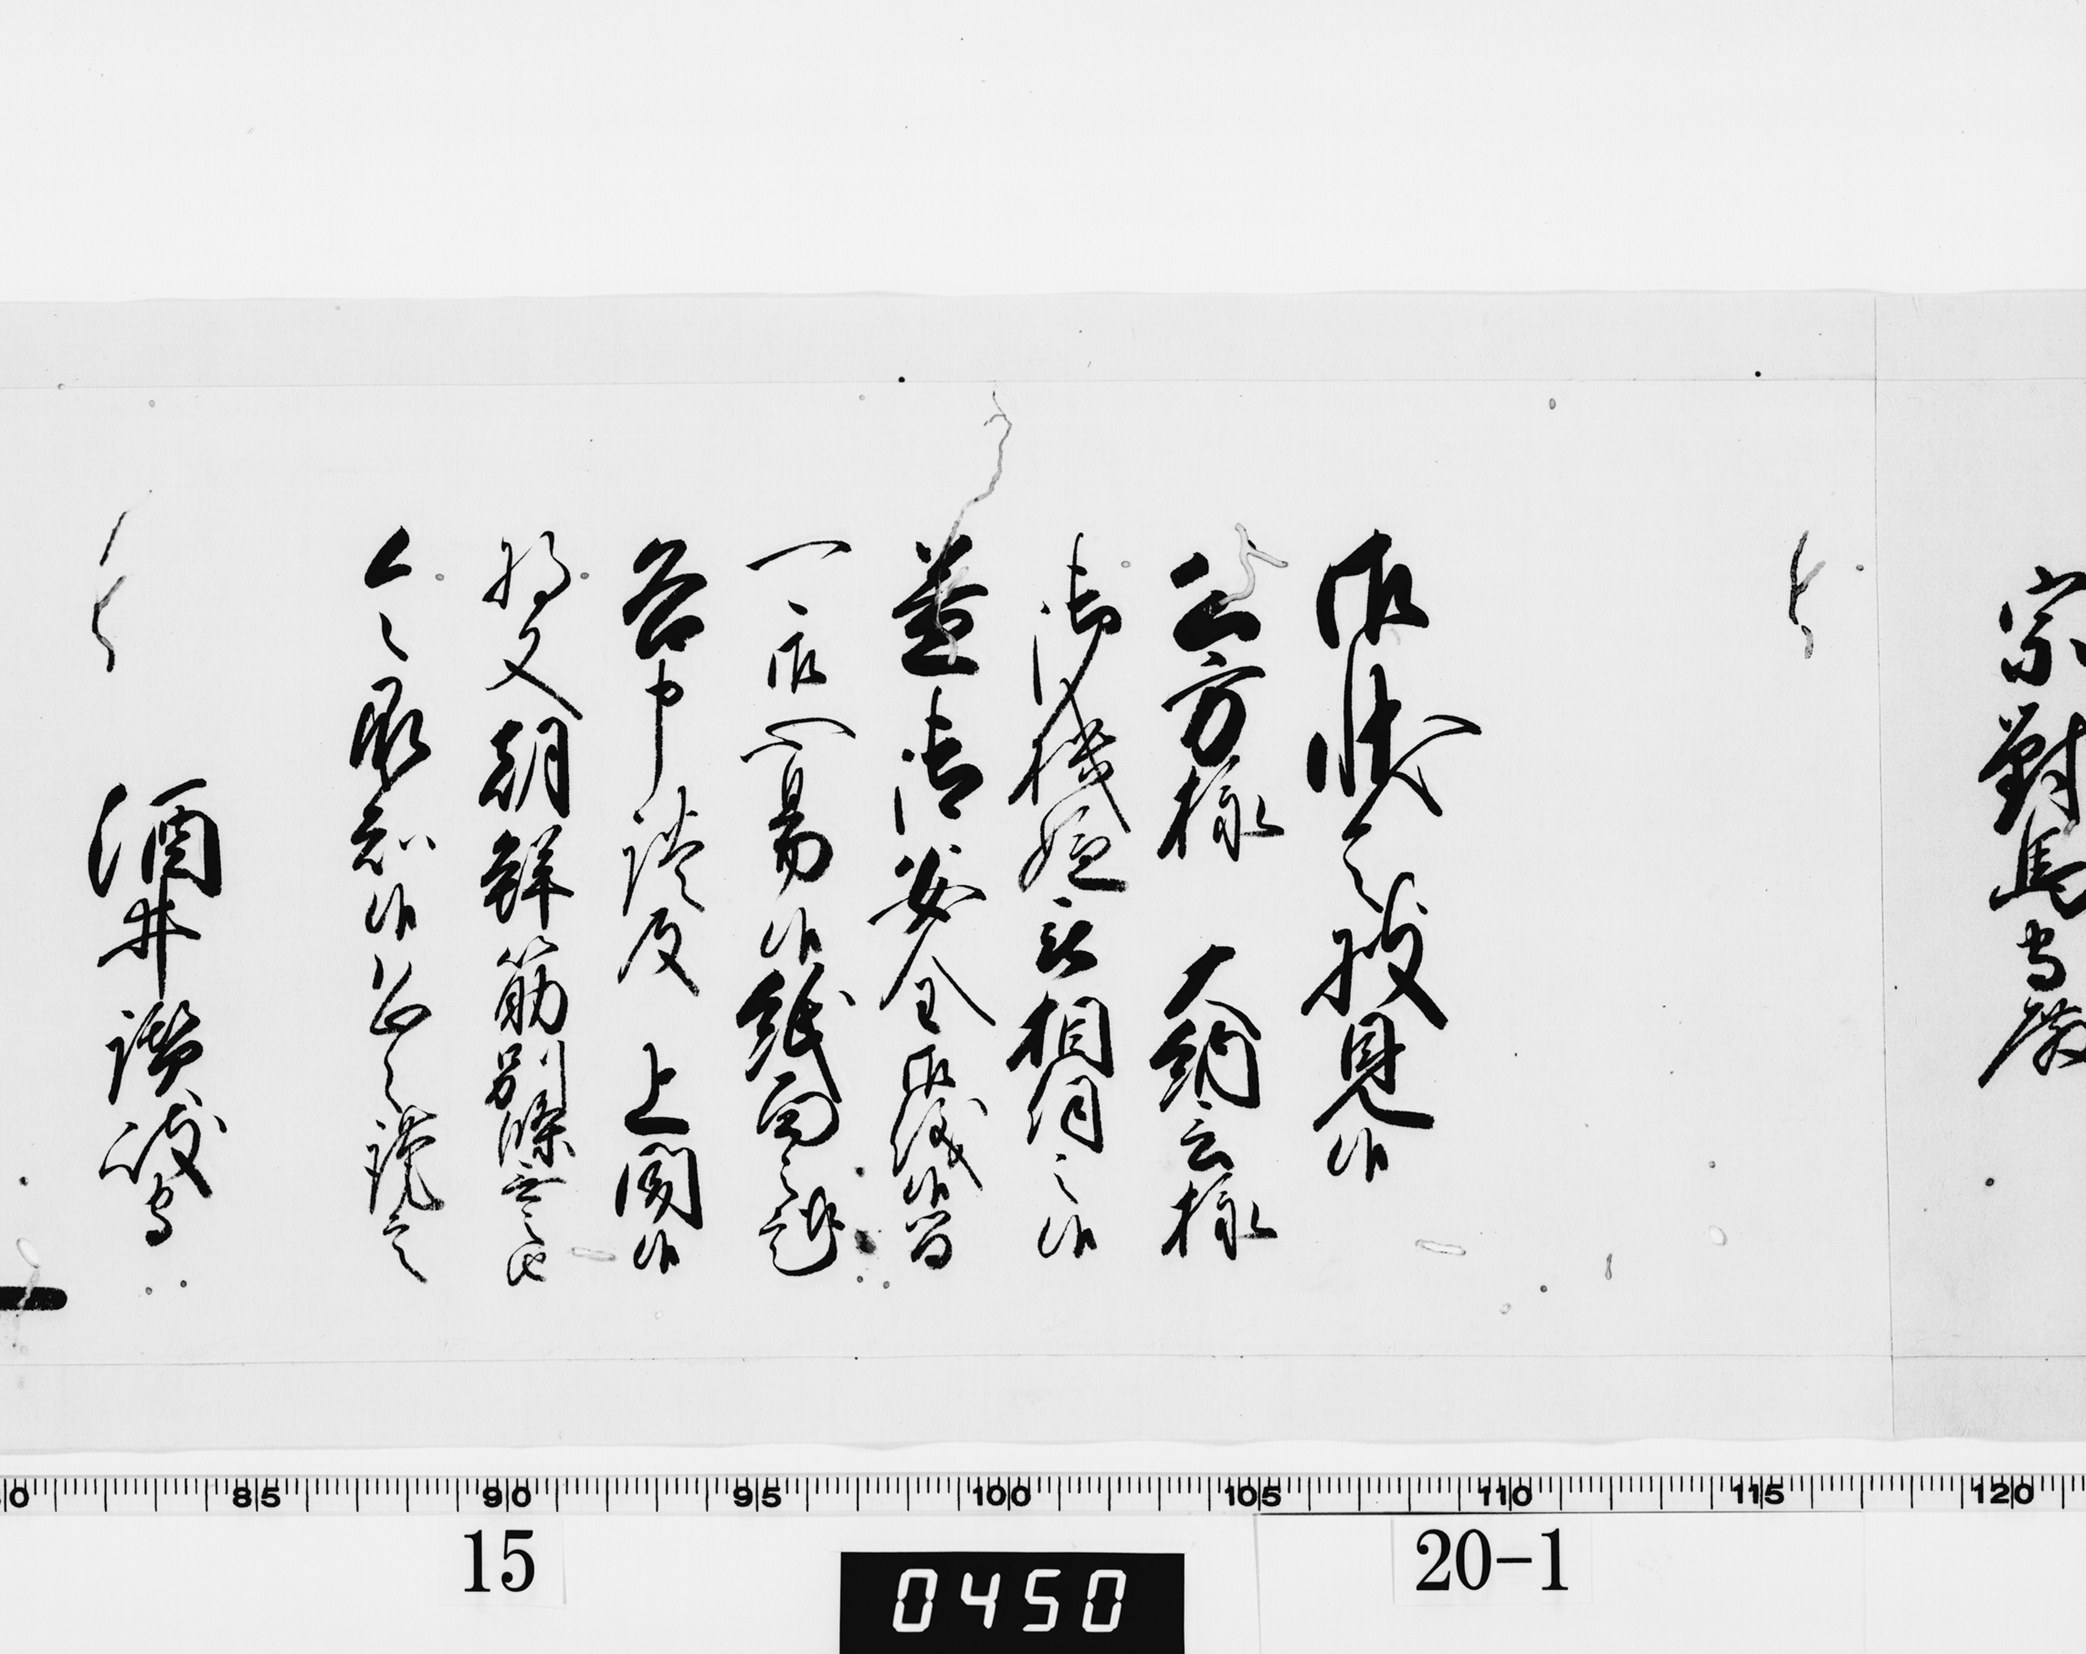 宗對馬守殿
御状令披見候
公方様 大納言様
御機嫌被相伺之候
益御安全御儀候間
可御心易候紙面之趣
各申談及 上聞候
将又朝鮮筋別條無之由
令承知候恐々謹言
酒井讃岐守
80 85 90 95 100 105 110 115 120
15
20-1
0450